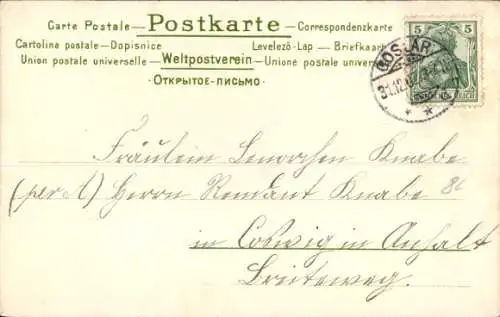 Carte Postale — Postkarte — Correspondenzkarte
Cartoline postale — Dopisnice Levelező-Lap — Briefkaart
Union postale universelle — Weltpostverein — Unione postale univer
·ОТКРЫТОЕ-ПИСЬМО·
5 5
GOSLAR
31.12.
Fräulein Lenorchen Knabe
(per A) Herrn Rendant Knabe
in Coswig in Anhalt
Breiteweg.